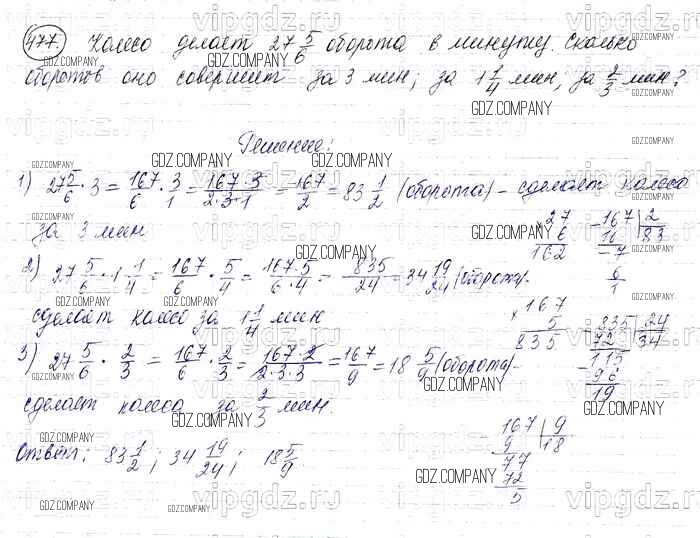 477. Колесо делает 27 5/6 оборота в минуту. Сколько
оборотов оно совершит за 3 мин; за 1 1/4 мин, за 2/3 мин?
Решение:
1) 27 5/6 · 3 = 167/6 · 3/1 = 167·3/2·3·1 = 167/2 = 83 1/2 (оборота) – сделает колесо
за 3 мин
2) 27 5/6 · 1 1/4 = 167/6 · 5/4 = 167·5/6·4 = 835/24 = 34 19/24 (оборота) -
сделает колесо за 1 1/4 мин
3) 27 5/6 · 2/3 = 167/6 · 2/3 = 167·2/2·3·3 = 167/9 = 18 5/9 (оборота) -
сделает колесо за 2/3 мин.
Ответ: 83 1/2; 34 19/24; 18 5/9
×27
6
162
-167 | 2
16 | 83
-7
6
1
×167
5
835
835 | 24
72 | 34
-115
96
19
-167 | 9
9 | 18
77
72
5
GDZ.COMPANY
vipgdz.ru